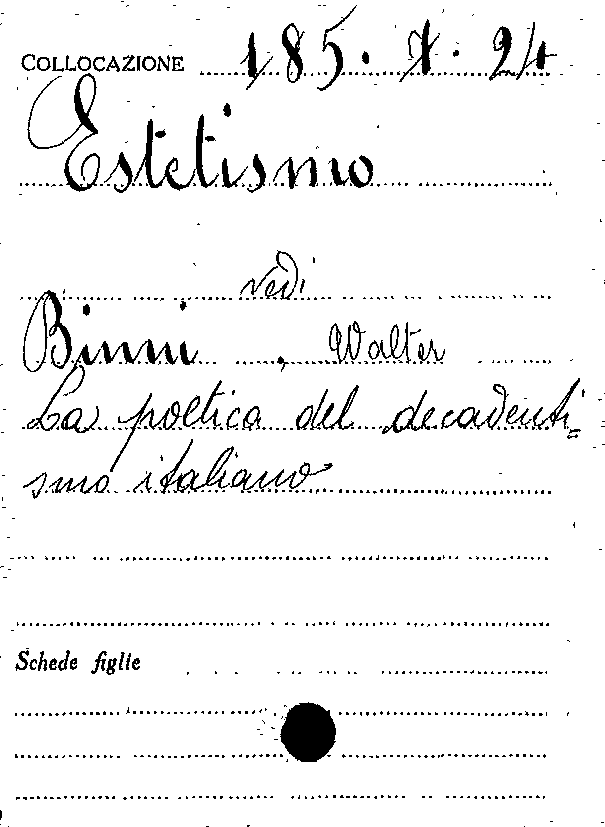 COLLOCAZIONE 185. 7. 24
Estetismo
vedi
Binni, Walter
La poetica del decadenti=
smo italiano
Schede figlie